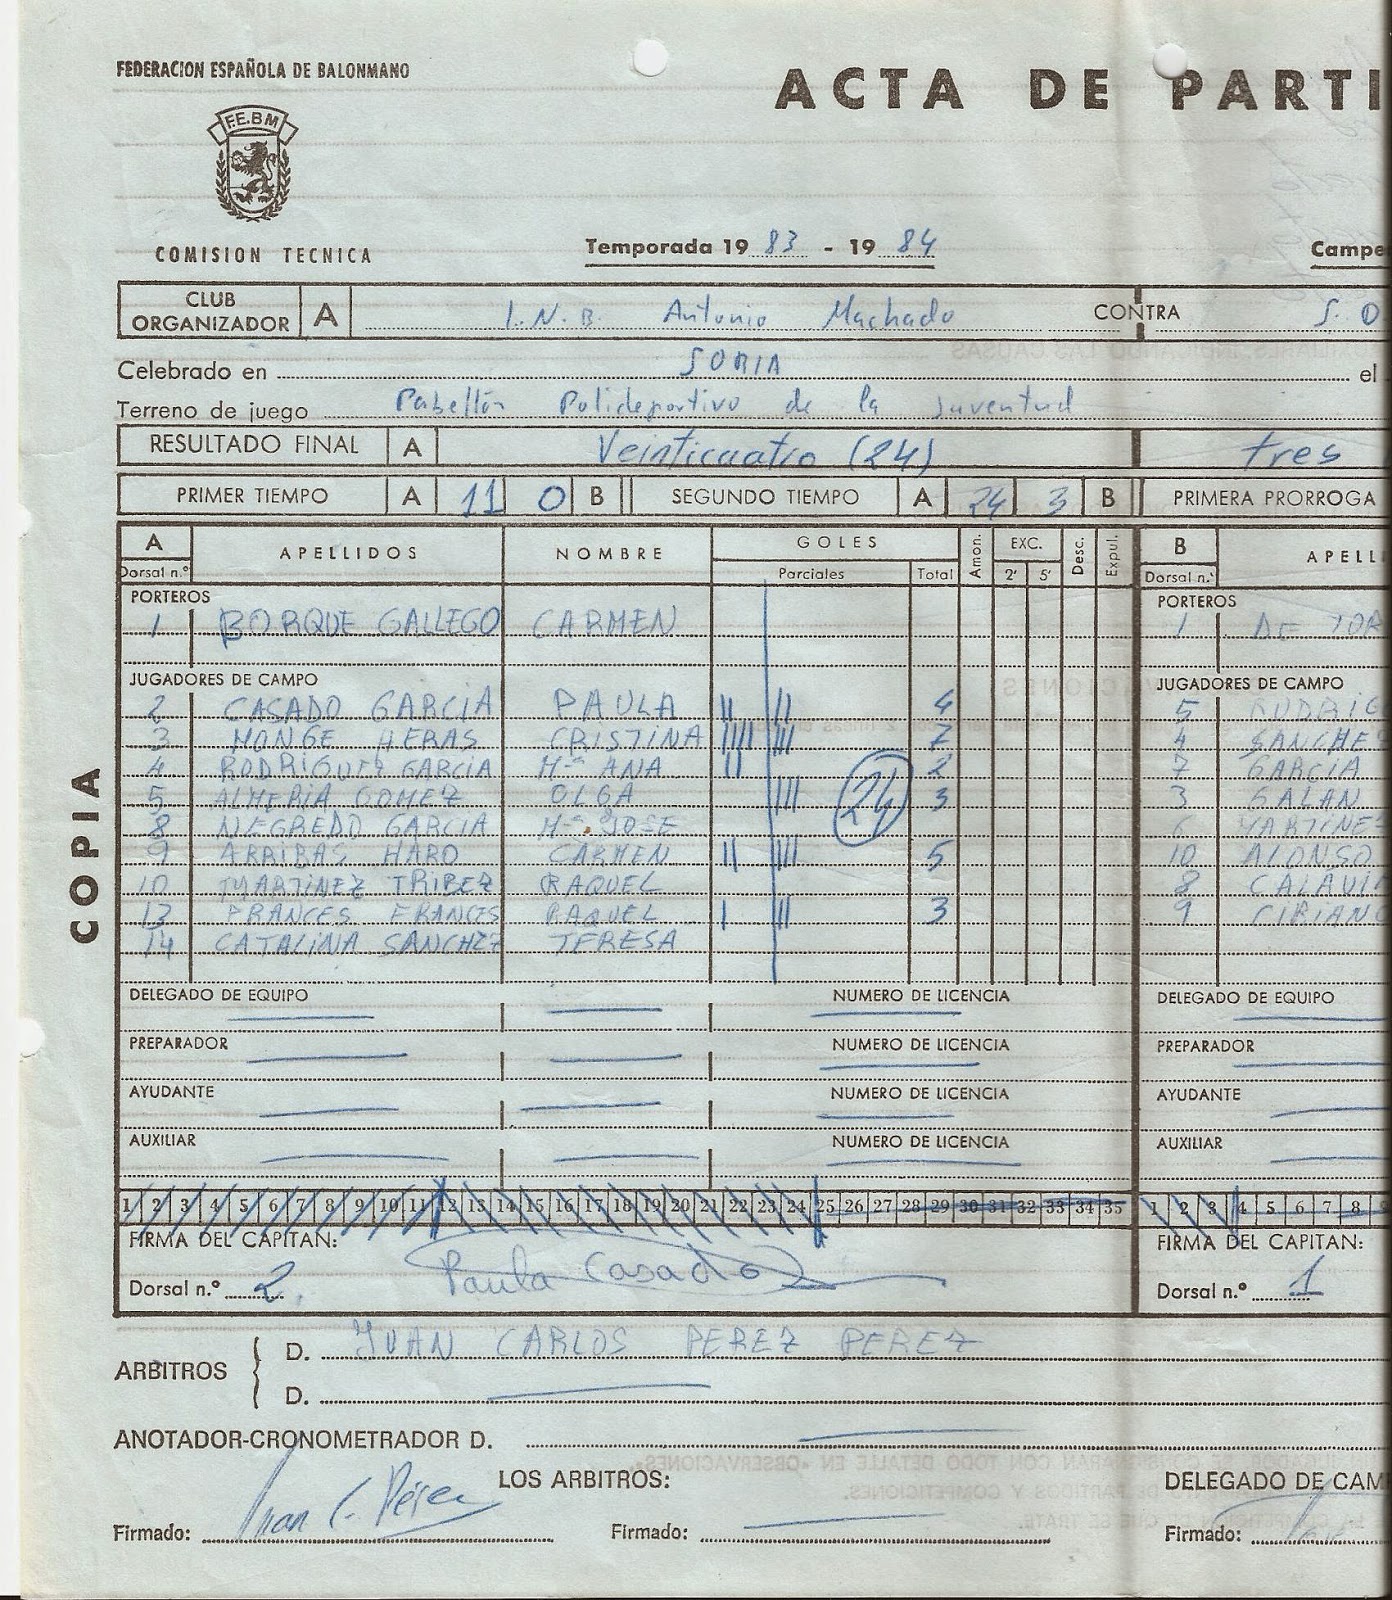 FEDERACION ESPAÑOLA DE BALONMANO
ACTA DE PARTI
F.E.BM
COMISION TECNICA
Temporada 19 83 - 19 84
Campe
CLUB ORGANIZADOR A I.N.B. Antonio Machado CONTRA S. O
Celebrado en SORIA el
Terreno de juego Pabellón Polideportivo de la Juventud
RESULTADO FINAL A Veinticuatro (24) tres
PRIMER TIEMPO A 11 0 B SEGUNDO TIEMPO A 24 3 B PRIMERA PRORROGA
A APELLIDOS NOMBRE GOLES Amon. EXC. Desc. Expul. B APELL
Dorsal n.º Parciales Total 2' 5' Dorsal n.º
PORTEROS PORTEROS
1 BORQUE GALLEGO CARMEN 1 DE TOR
JUGADORES DE CAMPO JUGADORES DE CAMPO
2 CASADO GARCIA PAULA II II 4 5 RODRIG
3 MONGE HERAS CRISTINA IIII III 7 4 SANCHEZ
4 RODRIGUEZ GARCIA Mª ANA II 2 7 GARCIA
5 ALMERIA GOMEZ OLGA III 3 3 GALAN
24
8 NEGREDO GARCIA Mª JOSE 6 MARTINE
9 ARRIBAS HARO CARMEN II III 5 10 ALONSO
10 MARTINEZ TRIBEZ RAQUEL 8 CALAVI
13 FRANCES FRANCES RAQUEL I II 3 9 CIRIANO
14 CATALINA SANCHEZ TERESA
DELEGADO DE EQUIPO NUMERO DE LICENCIA DELEGADO DE EQUIPO
PREPARADOR NUMERO DE LICENCIA PREPARADOR
AYUDANTE NUMERO DE LICENCIA AYUDANTE
AUXILIAR NUMERO DE LICENCIA AUXILIAR
1 2 3 4 5 6 7 8 9 10 11 12 13 14 15 16 17 18 19 20 21 22 23 24 25 26 27 28 29 30 31 32 33 34 35 1 2 3 4 5 6 7 8
FIRMA DEL CAPITAN: FIRMA DEL CAPITAN:
Dorsal n.º 2 Paula Casado Dorsal n.º 1
ARBITROS D. JUAN CARLOS PEREZ PEREZ
D.
ANOTADOR-CRONOMETRADOR D.
LOS ARBITROS: DELEGADO DE CAM
Firmado: Juan C. Pérez Firmado: Firmado:
COPIA